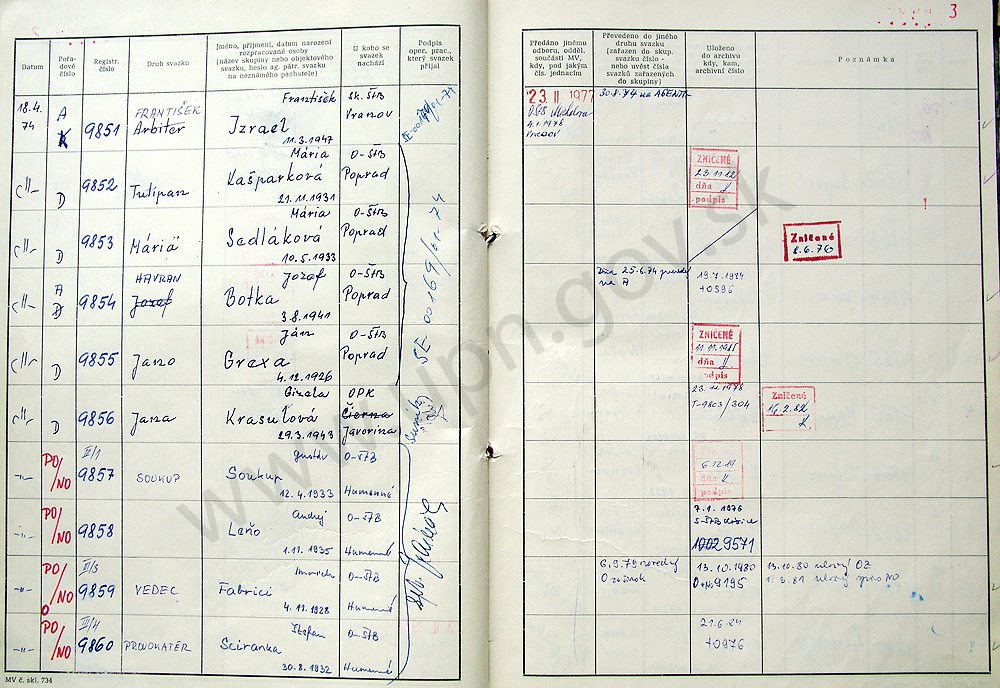 3
Datum
Pořadové číslo
Registr. číslo
Druh svazku
Jméno, příjmení, datum narození rozpracované osoby (název skupiny nebo objektového svazku, heslo ag. pátr. svazku na neznámého pachatele)
U koho se svazek nachází
Podpis oper. prac., který svazek přijal
Předáno jinému odboru, odděl. součásti MV, kdy, pod jakým čís. jednacím
Převedeno do jiného druhu svazku (zařazen do skup. svazku číslo - nebo uvést čísla svazků zařazených do skupiny)
Uloženo do archivu kdy, kam, archivní číslo
Poznámka
18.4. 74
A
K
9851
FRANTIŠEK
Arbiter
František
Izrael
11.3.1947
Sk. ŠtB
Vranov
23 II 1977
30.8.74 na AGENTA
D
9852
Tulipan
Mária
Kašparková
21.11.1931
O-ŠtB
Poprad
ZNIČENÉ
dňa
podpis
D
9853
Mária
Mária
Sedláková
10.5.1933
O-ŠtB
Poprad
Zničené
8.6.76
A
D
9854
HAVRAN
Jozef
Jozef
Botka
3.8.1941
O-ŠtB
Poprad
SE-00169/01-74
Dňa 25.6.74
na A
D
9855
Jano
Ján
Grexa
4.12.1926
O-ŠtB
Poprad
ZNIČENÉ
dňa
podpis
D
9856
Jana
Gizela
Krasuľová
29.3.1943
OPK
Čierna
Javorina
23.11.1978
T-9803/304
Zničené
PO/NO
II/1
9857
SOUKUP
Gustáv
Soukup
12.4.1933
O-ŠtB
Humenné
6.12.89
dňa
podpis
PO/NO
9858
Andrej
Leňo
1.11.1935
O-ŠTB
Humenné
7.1.1976
9571
PO/NO
II/3
9859
VEDEC
Imrich
Fabrici
4.11.1928
O-ŠtB
Humenné
6.9.79
13.10.1980
9195
13.10.80
PO/NO
II/4
9860
PROVOKATÉR
Štefan
Sciranka
30.8.1932
O-ŠtB
Humenné
21.6.84
10976
MV č. skl. 734
www.upn.gov.sk